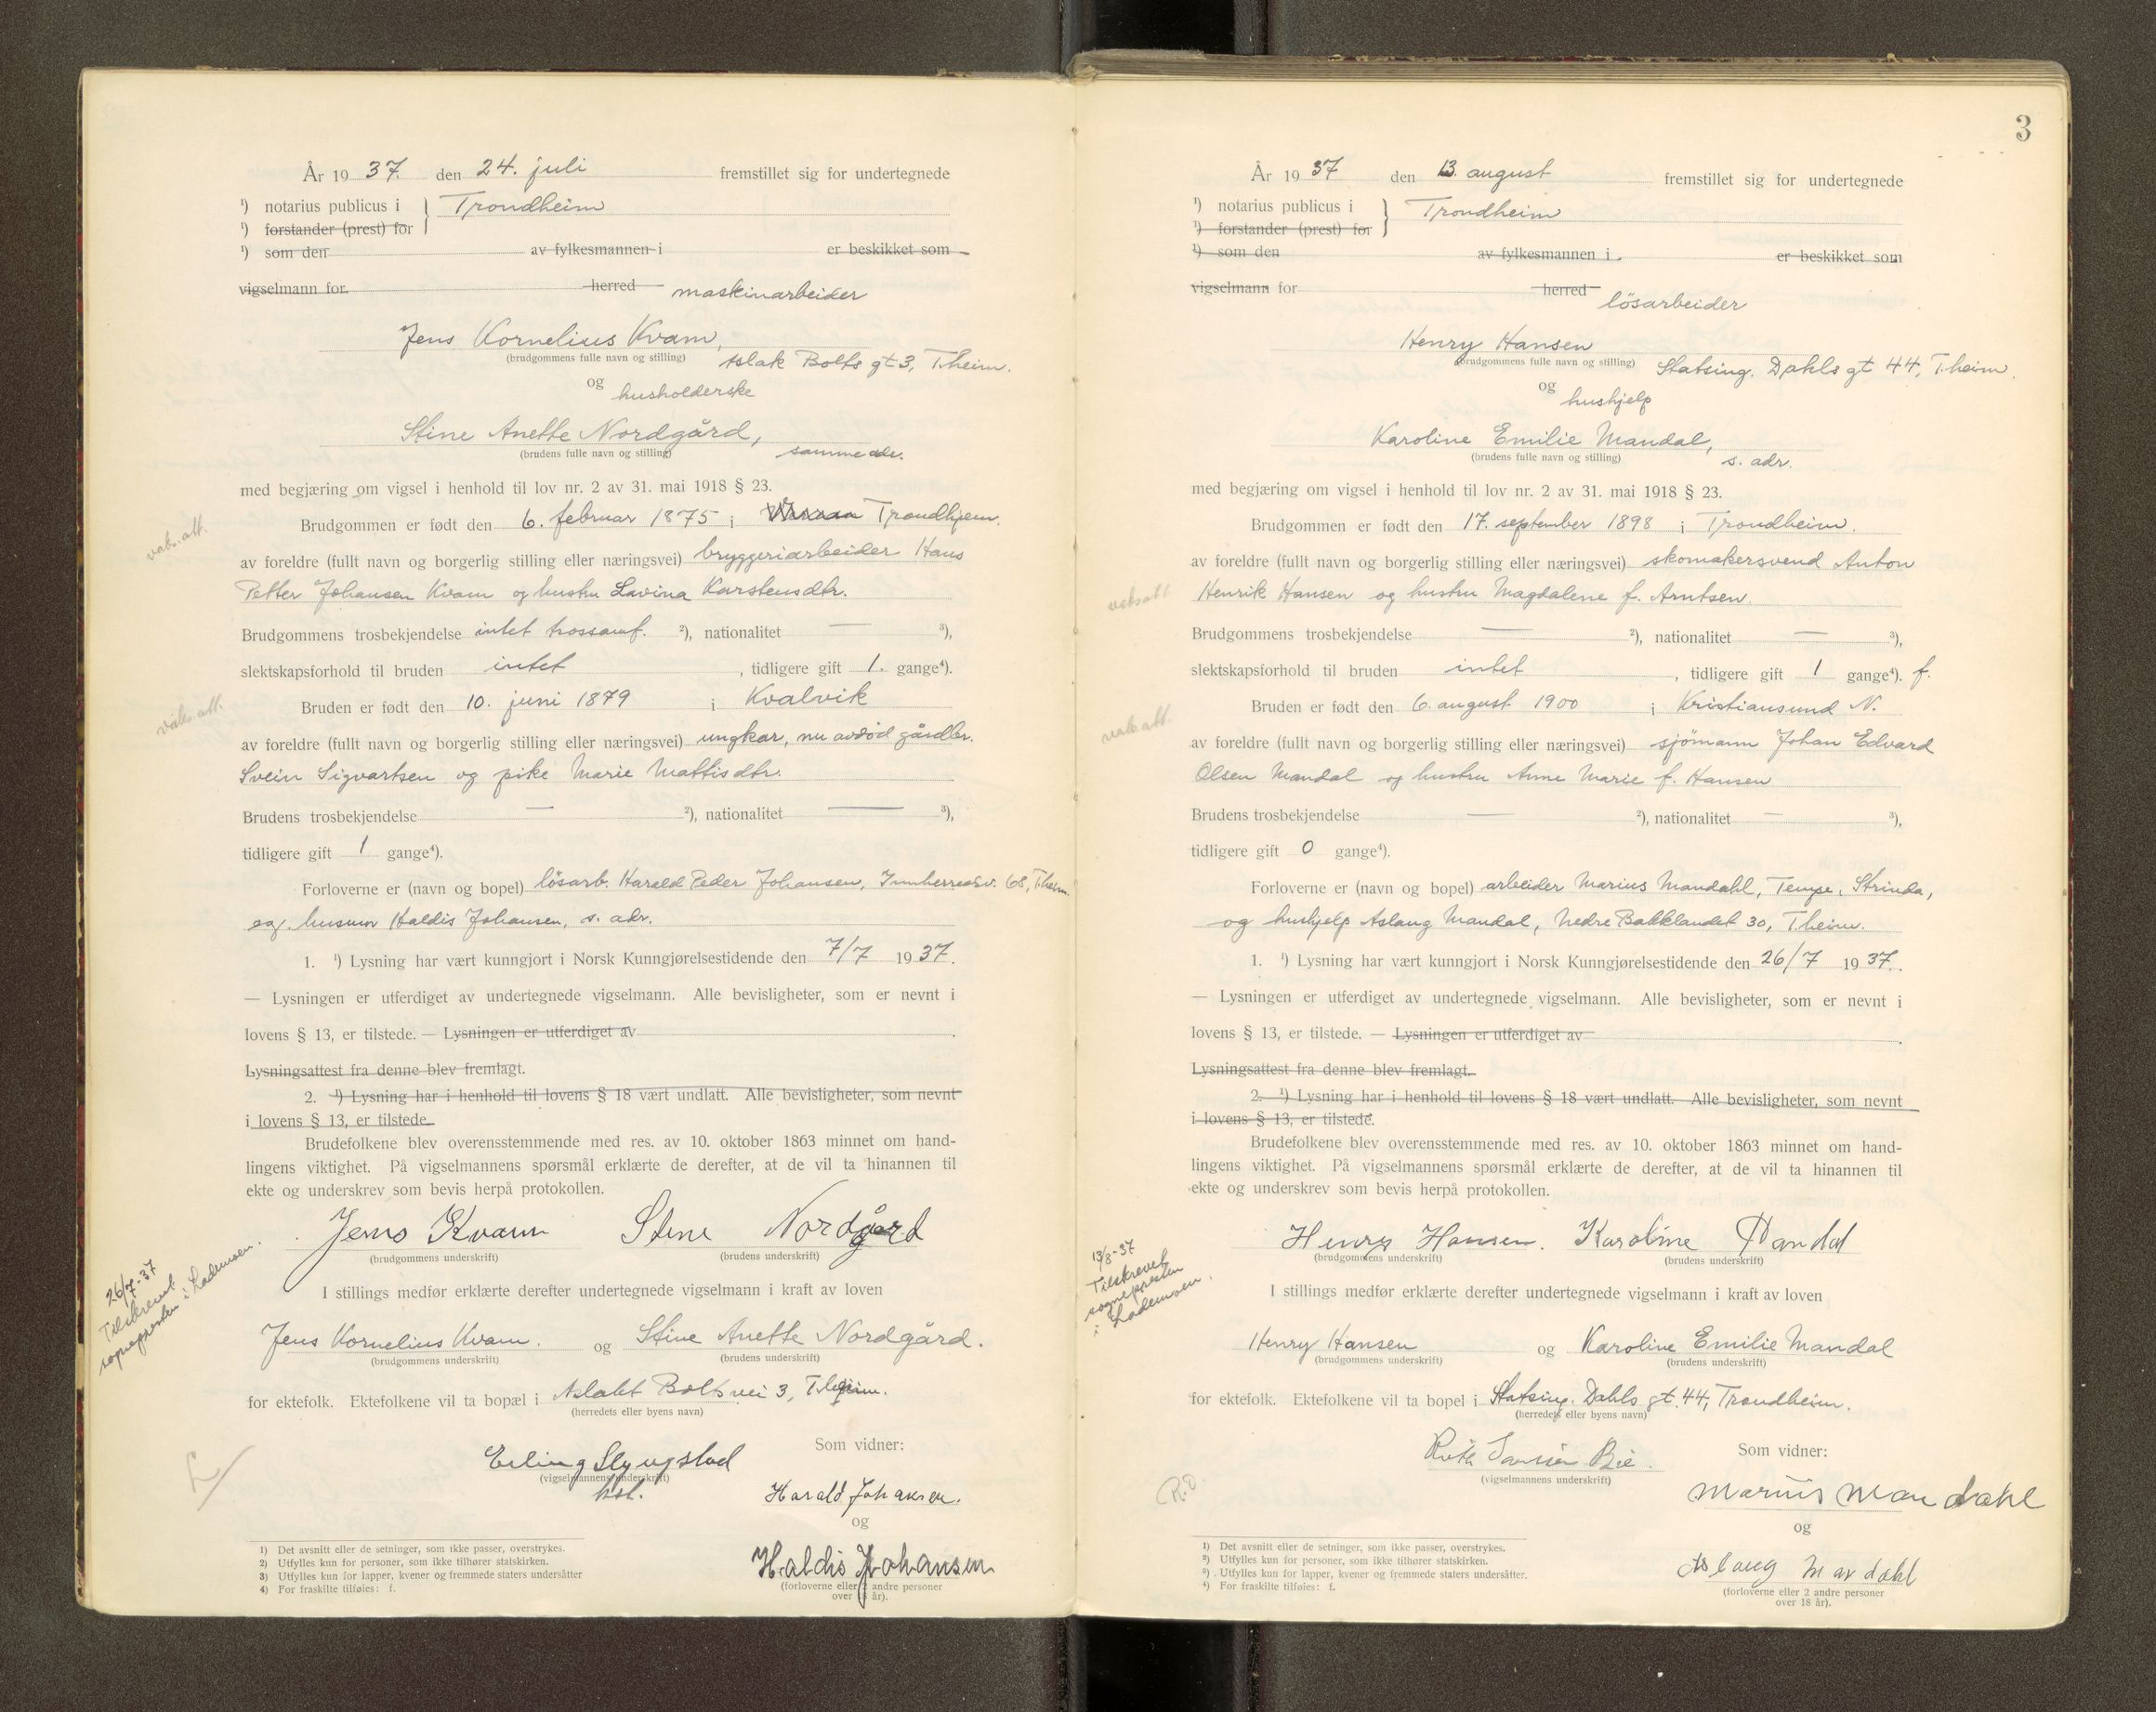 År 1937. den 24. juli fremstillet sig for undertegnede
¹) notarius publicus i } Trondheim
¹) forstander (prest) for
¹) som den av fylkesmannen i er beskikket som
vigselmann for herred maskinarbeider
Jens Kornelius Kvam,
(brudgommens fulle navn og stilling) Aslak Bolts gt 3, T.heim.
og husholderske
Stine Anette Nordgård,
(brudens fulle navn og stilling) samme adr.
med begjæring om vigsel i henhold til lov nr. 2 av 31. mai 1918 § 23.
Brudgommen er født den 6. februar 1875 i Trondhjem.
vabs. att.
av foreldre (fullt navn og borgerlig stilling eller næringsvei) bryggeriarbeider Hans
Petter Johansen Kvam og hustru Lavina Karstensdtr.
Brudgommens trosbekjendelse intet trossamf. ²), nationalitet — ³),
slektskapsforhold til bruden intet, tidligere gift 1. gange⁴).
Bruden er født den 10. juni 1879 i Kvalvik
vabs. att.
av foreldre (fullt navn og borgerlig stilling eller næringsvei) ungkar, nu avdød gårdbr.
Svein Sigvartsen og pike Marie Mattisdtr.
Brudens trosbekjendelse — ²), nationalitet — ³),
tidligere gift 1 gange⁴).
Forloverne er (navn og bopel) lösarb. Harald Peder Johansen, Innherredsv. 68, T.heim
og husmor Haldis Johansen, s. adr.
1. ¹) Lysning har vært kunngjort i Norsk Kunngjørelsestidende den 7/7 1937.
— Lysningen er utferdiget av undertegnede vigselmann. Alle bevisligheter, som er nevnt i
lovens § 13, er tilstede. — Lysningen er utferdiget av .
Lysningsattest fra denne blev fremlagt.
2. ¹) Lysning har i henhold til lovens § 18 vært undlatt. Alle bevisligheter, som nevnt
i lovens § 13, er tilstede
Brudefolkene blev overensstemmende med res. av 10. oktober 1863 minnet om hand-
lingens viktighet. På vigselmannens spørsmål erklærte de derefter, at de vil ta hinannen til
ekte og underskrev som bevis herpå protokollen.
Jens Kvam Stine Nordgård
(brudgommens underskrift) (brudens underskrift)
26/7-37
Tilskrevet
sognepresten i Lademoen.
I stillings medfør erklærte derefter undertegnede vigselmann i kraft av loven
Jens Kornelius Kvam. og Stine Anette Nordgård.
(brudgommens underskrift) (brudens underskrift)
for ektefolk. Ektefolkene vil ta bopæl i Aslakt Bolts vei 3, T.heim.
(herredets eller byens navn)
Erling Slyngstad Som vidner:
(vigselmannens underskrift)
kst. Harald Johansen.
og
Haldis Johansen
(forloverne eller 2 andre personer
over 18 år).
1) Det avsnitt eller de setninger, som ikke passer, overstrykes.
2) Utfylles kun for personer, som ikke tilhører statskirken.
3) Utfylles kun for lapper, kvener og fremmede staters undersåtter
4) For fraskilte tilføies: f.
3
År 1937 den 13. august fremstillet sig for undertegnede
¹) notarius publicus i } Trondheim
¹) forstander (prest) for
¹) som den av fylkesmannen i . er beskikket som
vigselmann for herred lösarbeider
Henry Hansen
(brudgommens fulle navn og stilling) Statsing. Dahls gt 44, T.heim.
og hushjelp
Karoline Emilie Mandal,
(brudens fulle navn og stilling) s. adr.
med begjæring om vigsel i henhold til lov nr. 2 av 31. mai 1918 § 23.
Brudgommen er født den 17. september 1898 i Trondheim.
av foreldre (fullt navn og borgerlig stilling eller næringsvei) skomakersvend Anton
vabs att
Henrik Hansen og hustru Magdalene f. Arntsen.
Brudgommens trosbekjendelse — ²), nationalitet — ³),
slektskapsforhold til bruden intet, tidligere gift 1 gange⁴). f.
Bruden er født den 6. august 1900 i Kristiansund N.
vabs att.
av foreldre (fullt navn og borgerlig stilling eller næringsvei) sjömann Johan Edvard
Olsen Mandal og hustru Anne Marie f. Hansen
Brudens trosbekjendelse — ²), nationalitet — ³),
tidligere gift 0 gange⁴).
Forloverne er (navn og bopel) arbeider Marius Mandahl, Tempe, Strinda,
og hushjelp Aslaug Mandal, Nedre Bakklandet 30, T.heim.
1. ¹) Lysning har vært kunngjort i Norsk Kunngjørelsestidende den 26/7 1937.
— Lysningen er utferdiget av undertegnede vigselmann. Alle bevisligheter, som er nevnt i
lovens § 13, er tilstede. — Lysningen er utferdiget av .
Lysningsattest fra denne blev fremlagt.
2. ¹) Lysning har i henhold til lovens § 18 vært undlatt. Alle bevisligheter, som nevnt
i lovens § 13, er tilstede.
Brudefolkene blev overensstemmende med res. av 10. oktober 1863 minnet om hand-
lingens viktighet. På vigselmannens spørsmål erklærte de derefter, at de vil ta hinannen til
ekte og underskrev som bevis herpå protokollen.
Henry Hansen. Karoline Mandal
(brudgommens underskrift) (brudens underskrift)
13/8-37
Tilskrevet
sognepresten
i Lademoen.
I stillings medfør erklærte derefter undertegnede vigselmann i kraft av loven
Henry Hansen og Karoline Emilie Mandal
(brudgommens underskrift) (brudens underskrift)
for ektefolk. Ektefolkene vil ta bopel i Statsing. Dahls gt. 44, Trondheim.
(herredets eller byens navn)
Ruth Bie. Som vidner:
(vigselmannens underskrift)
Marius Mandahl
og
Aslaug Mandahl
(forloverne eller 2 andre personer
over 18 år).
¹) Det avsnitt eller de setninger, som ikke passer, overstrykes.
²) Utfylles kun for personer, som ikke tilhører statskirken.
³) Utfylles kun for lapper, kvener og fremmede staters undersåtter.
⁴) For fraskilte tilføies: f.